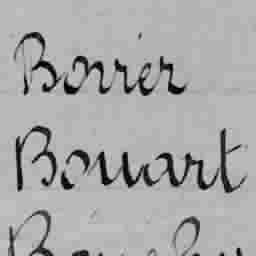 Borrier
Bouart